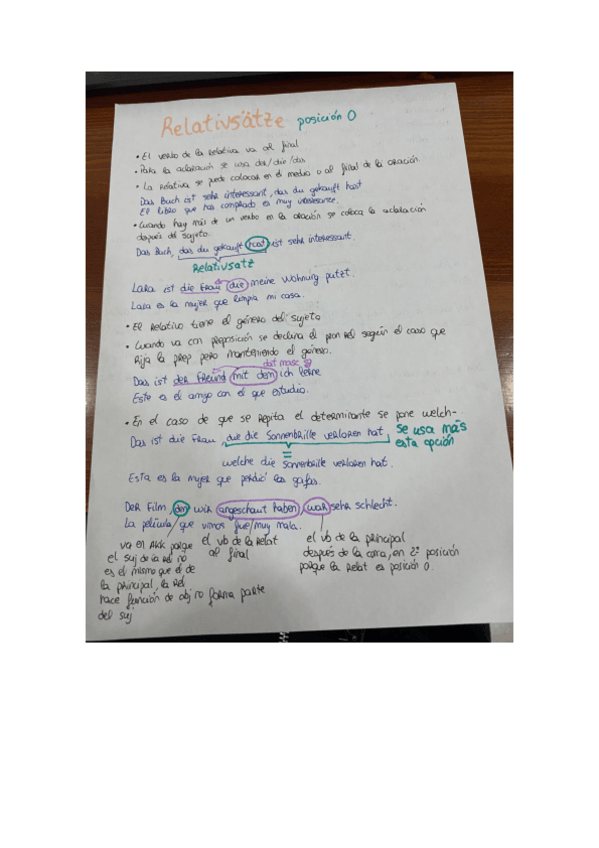 Relativsätze posición 0
• El verbo de la relativa va al final
• Para la aclaración se usa der/die/das
• La relativa se puede colocar en el medio o al final de la oración.
Das Buch ist sehr interessant, das du gekauft hast
El libro que has comprado es muy interesante.
• Cuando hay más de un verbo en la oración se coloca la aclaración
después del sujeto.
Das Buch, das du gekauft hast, ist sehr interessant.
Relativsatz
Lara ist die Frau, die meine Wohnung putzt.
Lara es la mujer que limpia mi casa.
• El relativo tiene el género del sujeto
• Cuando va con preposición se declina el pron rel según el caso que
rija la prep pero manteniendo el género.
dat masc
Das ist der Freund mit dem ich lerne
Este es el amigo con el que estudio.
• En el caso de que se repita el determinante se pone welch-
Das ist die Frau, die die Sonnenbrille verloren hat, se usa más
esta opción
=
welche die Sonnenbrille verloren hat.
Esta es la mujer que perdió las gafas.
Der Film, den wir angeschaut haben, war sehr schlecht.
La película, que vimos fue/muy mala.
va en Akk porque
el suj de la rel no
es el mismo que el de
la principal, la rel
hace función de obj no forma parte
del suj
el vb de la relat
al final
el vb de la principal
después de la coma, en 2ª posición
porque la relat es posición 0.